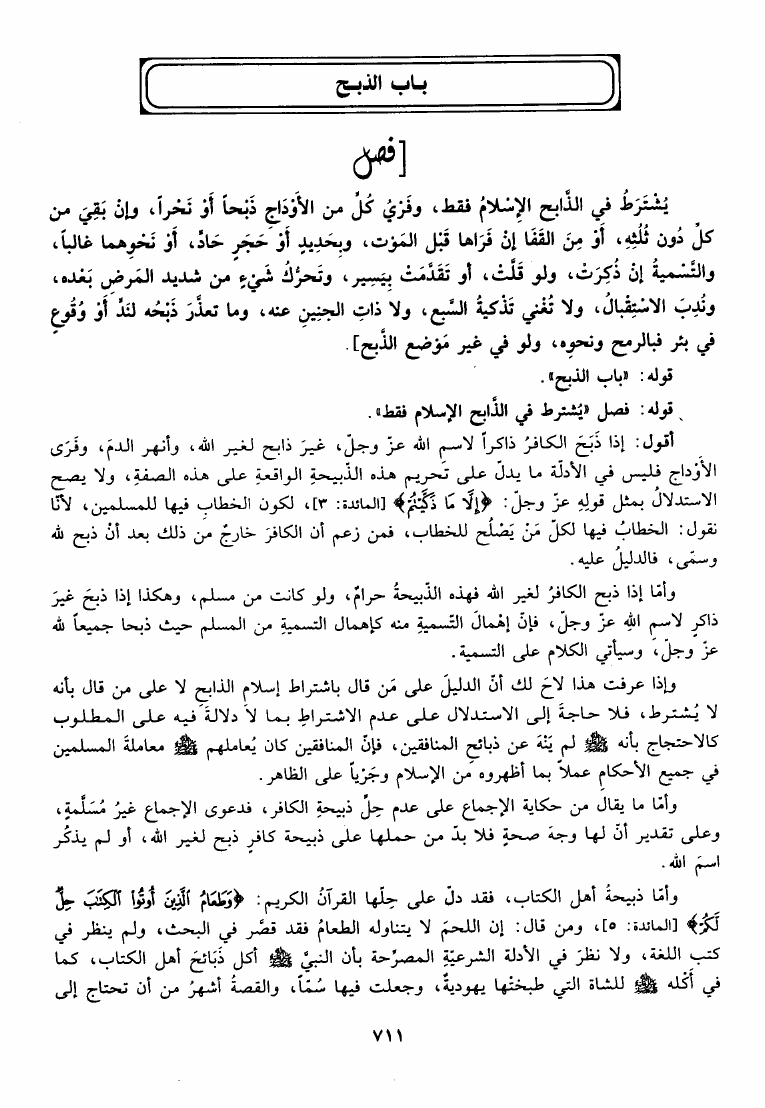 باب الذبح
[فصل
يُشْتَرَطُ في الذَّابح الإِسْلامُ فقط، وفَرْيُ كُلٍّ من الأَوْدَاجِ ذَبْحاً أَوْ نَحْراً، وإنْ بَقِيَ من
كلٍّ دُون ثُلُثِهِ، أَوْ مِنَ القَفَا إنْ فَرَاها قَبْل المَوْت، وبِحَديدٍ أَوْ حَجَرٍ حَادٍّ، أَوْ نَحْوِهما غالباً،
والتَّسْميةُ إنْ ذُكِرَتْ، ولو قَلَّتْ، أو تَقَدَّمَتْ بِيَسِير، وتَحرُّكُ شَيْءٍ من شديد المَرضِ بَعْده،
ونُدِبَ الاسْتِقْبالُ، ولا تُغْني تَذْكيةُ السَّبع، ولا ذاتِ الجنينِ عنه، وما تعذّرَ ذَبْحُه لندٍّ أَوْ وُقُوعٍ
في بئر فبالرمح ونحوِه، ولو في غير مَوْضع الذَّبح].
قوله: «باب الذبح».
قوله: فصل «يُشترط في الذَّابح الإسلام فقط».
أقول: إذا ذَبَحَ الكافرُ ذاكراً لاسمِ الله عزّ وجلّ، غيرَ ذابح لغير الله، وأنهر الدمَ، وفَرَى
الأوْداج فليس في الأدلّة ما يدلّ على تحريم هذه الذّبيحةِ الواقعةِ على هذه الصفةِ، ولا يصح
الاستدلالُ بمثل قولهِ عزّ وجلّ: ﴿إِلَّا مَا ذَكَّيْتُمْ﴾ [المائدة: ٣]، لكون الخطابِ فيها للمسلمين، لأنّا
نقول: الخطابُ فيها لكلّ مَنْ يَصْلُح للخطاب، فمن زعم أن الكافرَ خارجٌ من ذلك بعد أنْ ذبح لله
وسمّى، فالدليلُ عليه.
وأمّا إذا ذبح الكافرُ لغير الله فهذه الذّبيحةُ حرامٌ، ولو كانت من مسلم، وهكذا إذا ذبحَ غيرَ
ذاكرٍ لاسمِ اللهِ عزّ وجلّ، فإنّ إهْمالَ التّسميةِ منه كإهمال التسميةِ من المسلم حيث ذبحا جميعاً لله
عزّ وجلّ، وسيأتي الكلام على التسمية.
وإذا عرفت هذا لاحَ لك أنّ الدليلَ على مَن قال باشتراط إسلامِ الذابحِ لا على من قال بأنه
لا يُشترط، فلا حاجةَ إلى الاستدلال على عدم الاشتراطِ بما لا دلالةَ فيه على المطلوب
كالاحتجاج بأنه ﷺ لم يَنْهَ عن ذبائح المنافقين، فإنّ المنافقين كان يُعاملهم ﷺ معاملةَ المسلمين
في جميع الأحكامِ عملاً بما أظهروه من الإسلام وجَرْياً على الظاهر.
وأمّا ما يقال من حكاية الإجماع على عدم حِلِّ ذبيحةِ الكافر، فدعوى الإجماع غيرُ مُسَلَّمةٍ،
وعلى تقدير أنّ لها وجهَ صحةٍ فلا بدّ من حملها على ذبيحة كافرٍ ذبح لغير الله، أو لم يذكُر
اسمَ الله.
وأمّا ذبيحةُ أهل الكتاب، فقد دلّ على حِلِّها القرآنُ الكريم: ﴿وَطَعَامُ الَّذِينَ أُوتُوا الْكِتَٰبَ حِلٌّ
لَّكُمْ﴾ [المائدة: ٥]، ومن قال: إن اللحمَ لا يتناوله الطعامُ فقد قصّر في البحث، ولم ينظر في
كتب اللغة، ولا نظرَ في الأدلة الشرعيّةِ المصرِّحة بأن النبيَّ ﷺ أكل ذَبَائحَ أهل الكتاب، كما
في أكْله ﷺ للشاة التي طبختْها يهوديةٌ، وجعلت فيها سُمّاً، والقصةُ أشهرُ من أن تحتاج إلى
٧١١